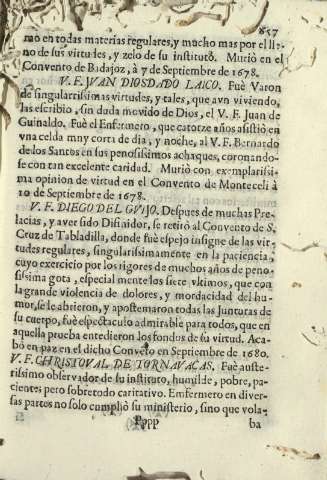 857
mo en todas materias regulares, y mucho mas por el lle-
no de sus virtudes, y zelo de su institutô. Muriò en el
Convento de Badajoz, à 7 de Septiembre de 1678.
V. F. IVAN DIOSDADO LAICO. Fuè Varon
de singularissimas virtudes, y tales, que aun viviendo,
las escribio, sin duda movido de Dios, el V. F. Juan de
Guinaldo. Fuè el Enfermero, que catorze años asistiò en
vna celda muy corta de dia, y noche, al V. F. Bernardo
de los Santos en sus penosissimos achaques, coronando-
se con tan excelente caridad. Muriò con exemplarissi-
ma opinion de virtud en el Convento de Monteceli à
10 de Septiembre de 1678.
V. F. DIEGO DEL GUIJO. Despues de muchas Pre-
lacias, y aver sido Disinidor, se retirò al Convento de S.
Cruz de Tabladilla, donde fuè espejo insigne de las vir-
tudes regulares, singularissimamente en la paciencia,
cuyo exercicio por los rigores de muchos años de peno-
sissima gota, especialmente los siete vltimos, que con
la grande violencia de dolores, y mordacidad del hu-
mor, se le abrieron, y apostemaron todas las Junturas de
su cuerpo, fuè espectaculo admirable para todos, que en
aquella prueba entedieron los fondos de su virtud. Aca-
bò en paz en el dicho Convēto en Septiembre de 1680.
V. F. CHRISTOVAL DE TORNAVACAS. Fuè auste-
rissimo observador de su instituto, humilde, pobre, pa-
cientes pero sobretodo caritativo. Enfermero en diver-
sas partes no solo cumpliò su ministerio, sino que vola-
Pppp
ba